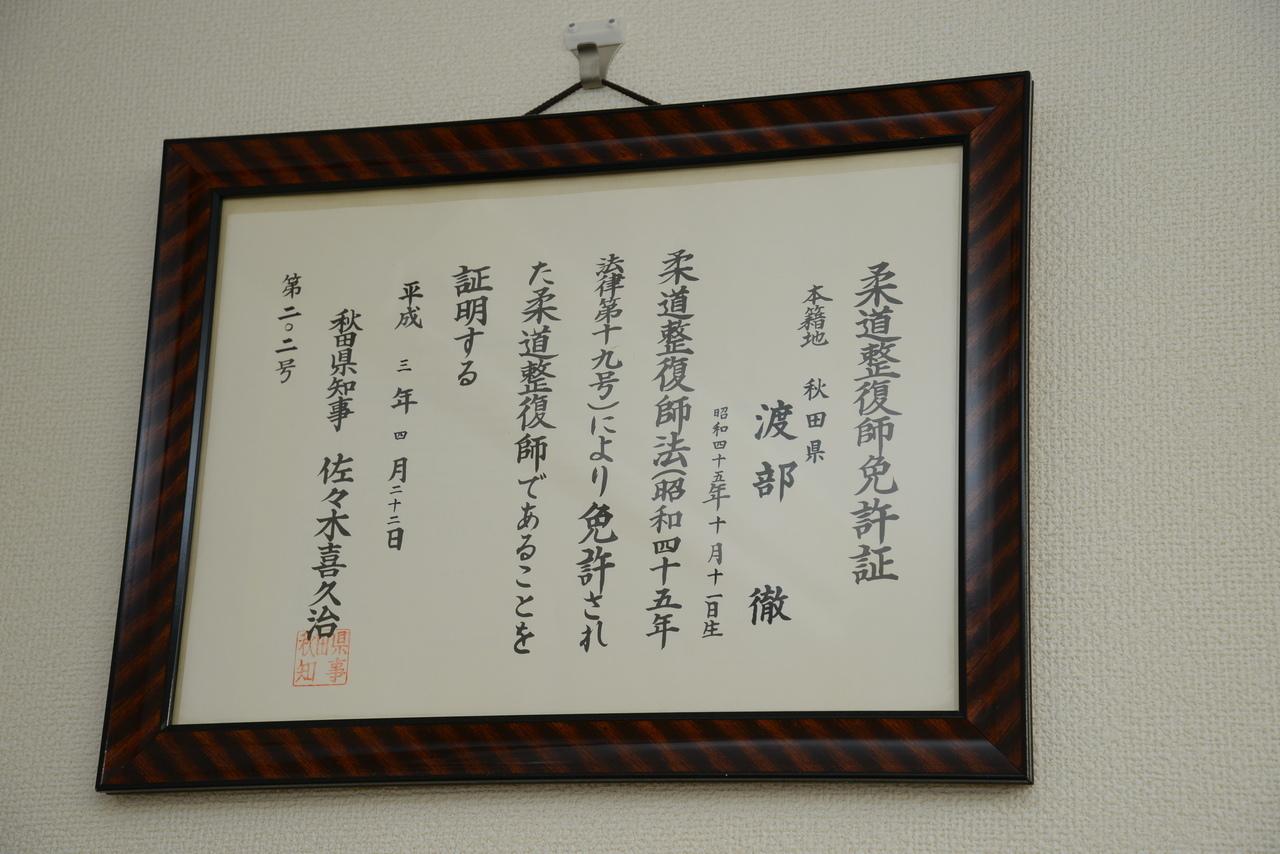 柔道整復師免許証
本籍地 秋田県
渡部 徹
昭和四十五年十月十一日生
柔道整復師法(昭和四十五年
法律第十九号)により免許され
た柔道整復師であることを
証明する
平成 三 年 四 月二十二日
秋田県知事 佐々木喜久治
秋田県
知事
第二〇二号